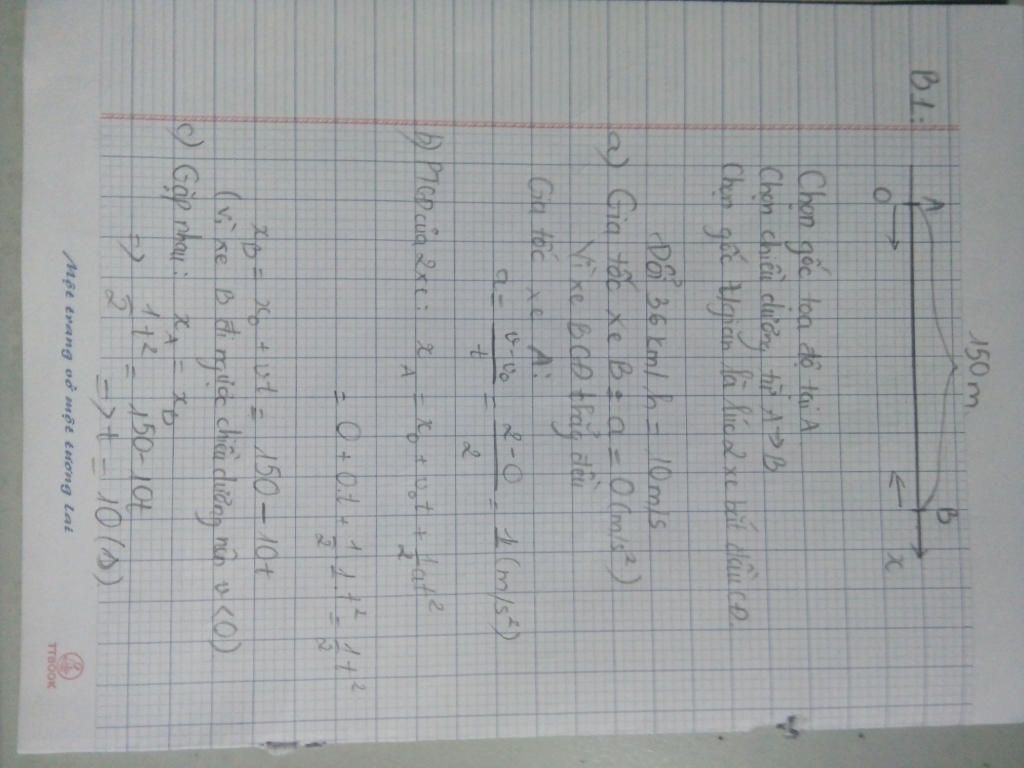 B1:
150 m
A B
O x
Chọn gốc toạ độ tại A
Chọn chiều dương từ A → B
Chọn gốc t/gian là lúc 2 xe bắt đầu CĐ.
Đổi 36 km/h = 10 m/s
a) Gia tốc xe B: a = 0 (m/s²)
Vì xe B CĐ thẳng đều
Gia tốc xe A:
a = \frac{v - v₀}{t} = \frac{2 - 0}{2} = 1 (m/s²)
b) PTCĐ của 2 xe: x_A = x₀ + v₀t + \frac{1}{2}at²
= 0 + 0.t + \frac{1}{2}1.t² = \frac{1}{2}t²
x_B = x₀ + vt = 150 - 10t
(Vì xe B đi ngược chiều dương nên v < 0)
c) Gặp nhau: x_A = x_B
=> \frac{1}{2}t² = 150 - 10t
=> t = 10 (s)
Một trang vở một tương lai
TTBOOK